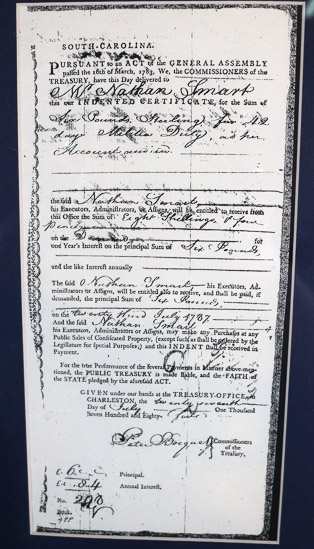 SOUTH-CAROLINA.
PURSUANT to an ACT of the GENERAL ASSEMBLY
passed the 16th of March, 1783, We, the COMMISSIONERS of the
TREASURY, have this Day delivered to
Mr. Nathan Smart
this our INDENTED CERTIFICATE, for the Sum of
Six Pounds Sterling for 42
days Militia Duty as per
Account audited
the said Nathan Smart
his Executors, Administrators, or Assigns, will be entitled to receive from
this Office the Sum of Eight Shillings & four
Pence
on the for
one Year's Interest on the principal Sum of Six Pounds,
and the like Interest annually
The said Nathan Smart, his Executors, Ad-
ministrators or Assigns, will be entitled also to receive, and shall be paid, if
demanded, the principal Sum of Six Pounds
on the twenty third July 1787.
And the said Nathan Smart
his Executors, Administrators or Assigns, may make any Purchases at any
Public Sales of Confiscated Property, (except such as shall be ordered by the
Legislature for special Purposes;) and this INDENT shall be received in
Payment.
For the true Performance of the several Payments in Manner above-men-
tioned, the PUBLIC TREASURY is made liable, and the FAITH of
the STATE pledged by the aforesaid ACT.
GIVEN under our hands at the TREASURY-OFFICE in
CHARLESTON, the twenty seventh
Day of July One Thousand
Seven Hundred and Eighty-
Peter Bocquet Commissioners
of the
Treasury.
Principal.
Annual Interest.
No. 298